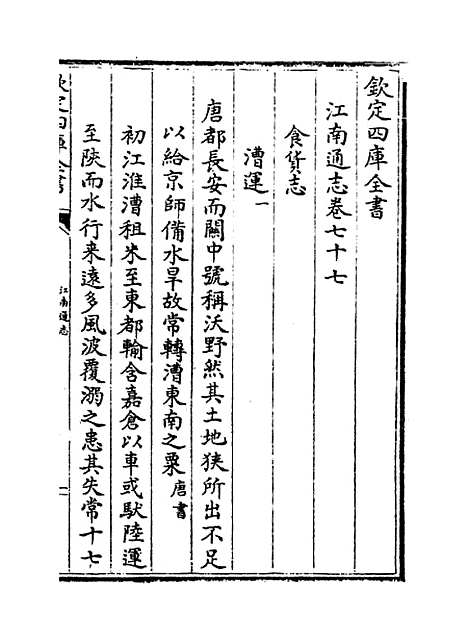 欽定四庫全書
江南通志卷七十七
食貨志
漕運一
唐都長安而關中號稱沃野然其土地狹所出不足
以給京師備水旱故常轉漕東南之粟唐書
初江淮漕租米至東都輸含嘉倉以車或馱陸運
至陝而水行来遠多風波覆溺之患其失常十七
欽定四庫全書
江南通志